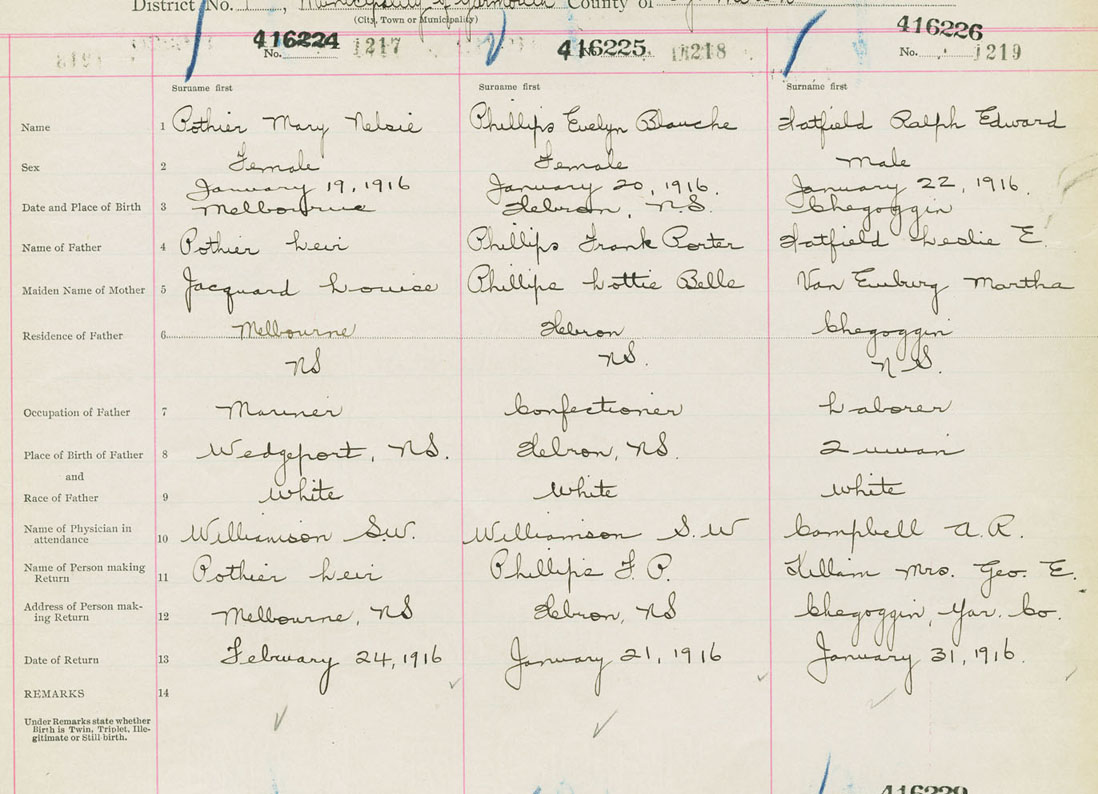 District No. 1, Municipality of Yarmouth County of Yarmouth
(City, Town or Municipality)
416224 416225 416226
No. 1217 No. 1218 No. 1219
Surname first Surname first Surname first
Name 1 Pothier Mary Nelsie Phillips Evelyn Blanche Hatfield Ralph Edward
Sex 2 Female Female Male
January 19, 1916 January 20, 1916. January 22, 1916.
Date and Place of Birth 3 Melbourne Hebron, N.S. Chegoggin
Name of Father 4 Pothier Levi Phillips Frank Porter Hatfield Leslie E.
Maiden Name of Mother 5 Jacquard Louise Phillips Lottie Belle Van Emburg Martha
Residence of Father 6 Melbourne Hebron Chegoggin
NS NS. N.S.
Occupation of Father 7 Mariner Confectioner Laborer
Place of Birth of Father 8 Wedgeport, NS. Hebron, NS.
and
Race of Father 9 White White White
Name of Physician in
attendance 10 Williamson S.W. Williamson S.W Campbell A.R.
Name of Person making
Return 11 Pothier Levi Phillips F.P. Killam Mrs. Geo. E.
Address of Person mak-
ing Return 12 Melbourne, NS Hebron, NS Chegoggin, Yar. Co.
Date of Return 13 February 24, 1916 January 21, 1916 January 31, 1916.
REMARKS 14
Under Remarks state whether
Birth is Twin, Triplet, Ille-
gitimate or Still birth.